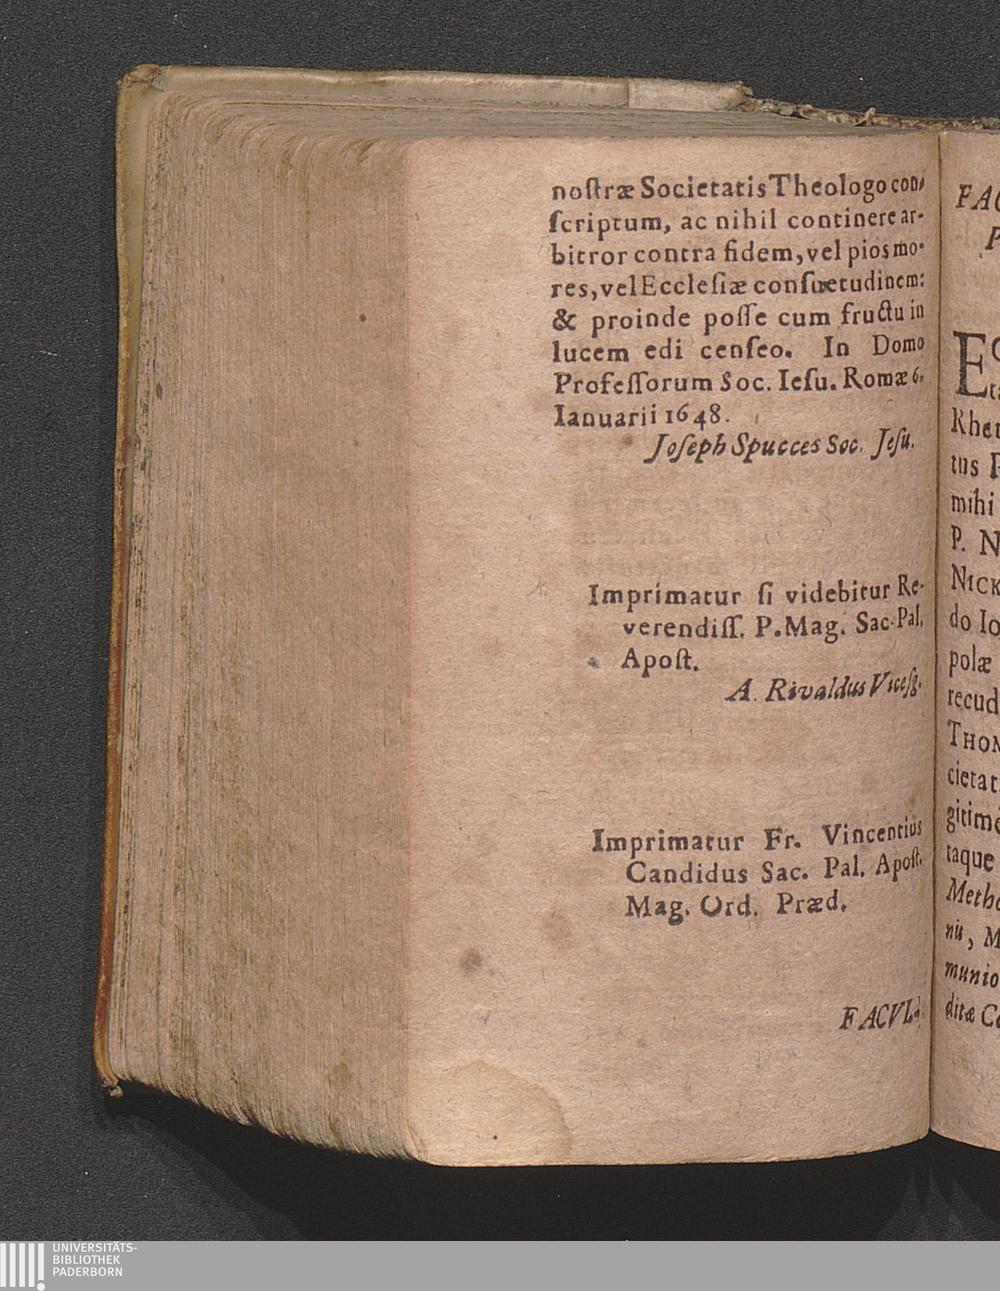 noſtræ Societatis Theologo con-
ſcriptum, ac nihil continere ar-
bitror contra fidem, vel pios mo-
res, vel Eccleſiæ conſuetudinem:
& proinde poſſe cum fructu in
lucem edi cenſeo. In Domo
Profeſſorum Soc. Ieſu. Romæ 6.
Ianuarii 1648.
Joſeph Spucces Soc. Jeſu.
Imprimatur ſi videbitur Re-
verendiſſ. P. Mag. Sac. Pal.
Apoſt.
A. Rivaldus Viceſg.
Imprimatur Fr. Vincentius
Candidus Sac. Pal. Apoſt.
Mag. Ord. Præd.
FACVL-
FAC
P
EG
Rhet
tus P
mihi
P. N
NICK
do Io
polæ
recud
THOM
cietat
gitime
taque
Metho
nis, M
munio
ditæ Co
UNIVERSITÄTS-
BIBLIOTHEK
PADERBORN